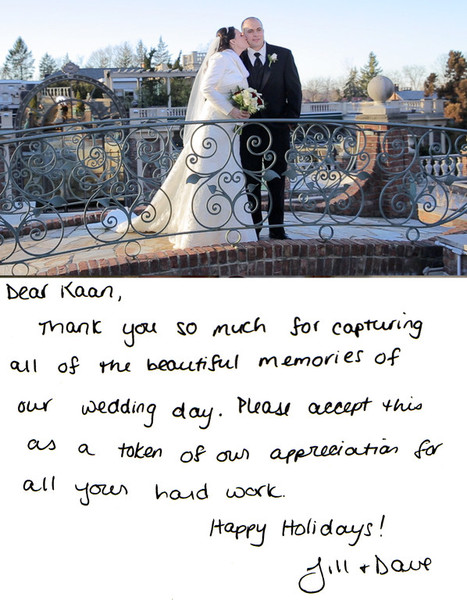 Dear Kaan,
Thank you so much for capturing
all of the beautiful memories of
our wedding day. Please accept this
as a token of our appreciation for
all yours hard work.
Happy Holidays!
Jill + Dave